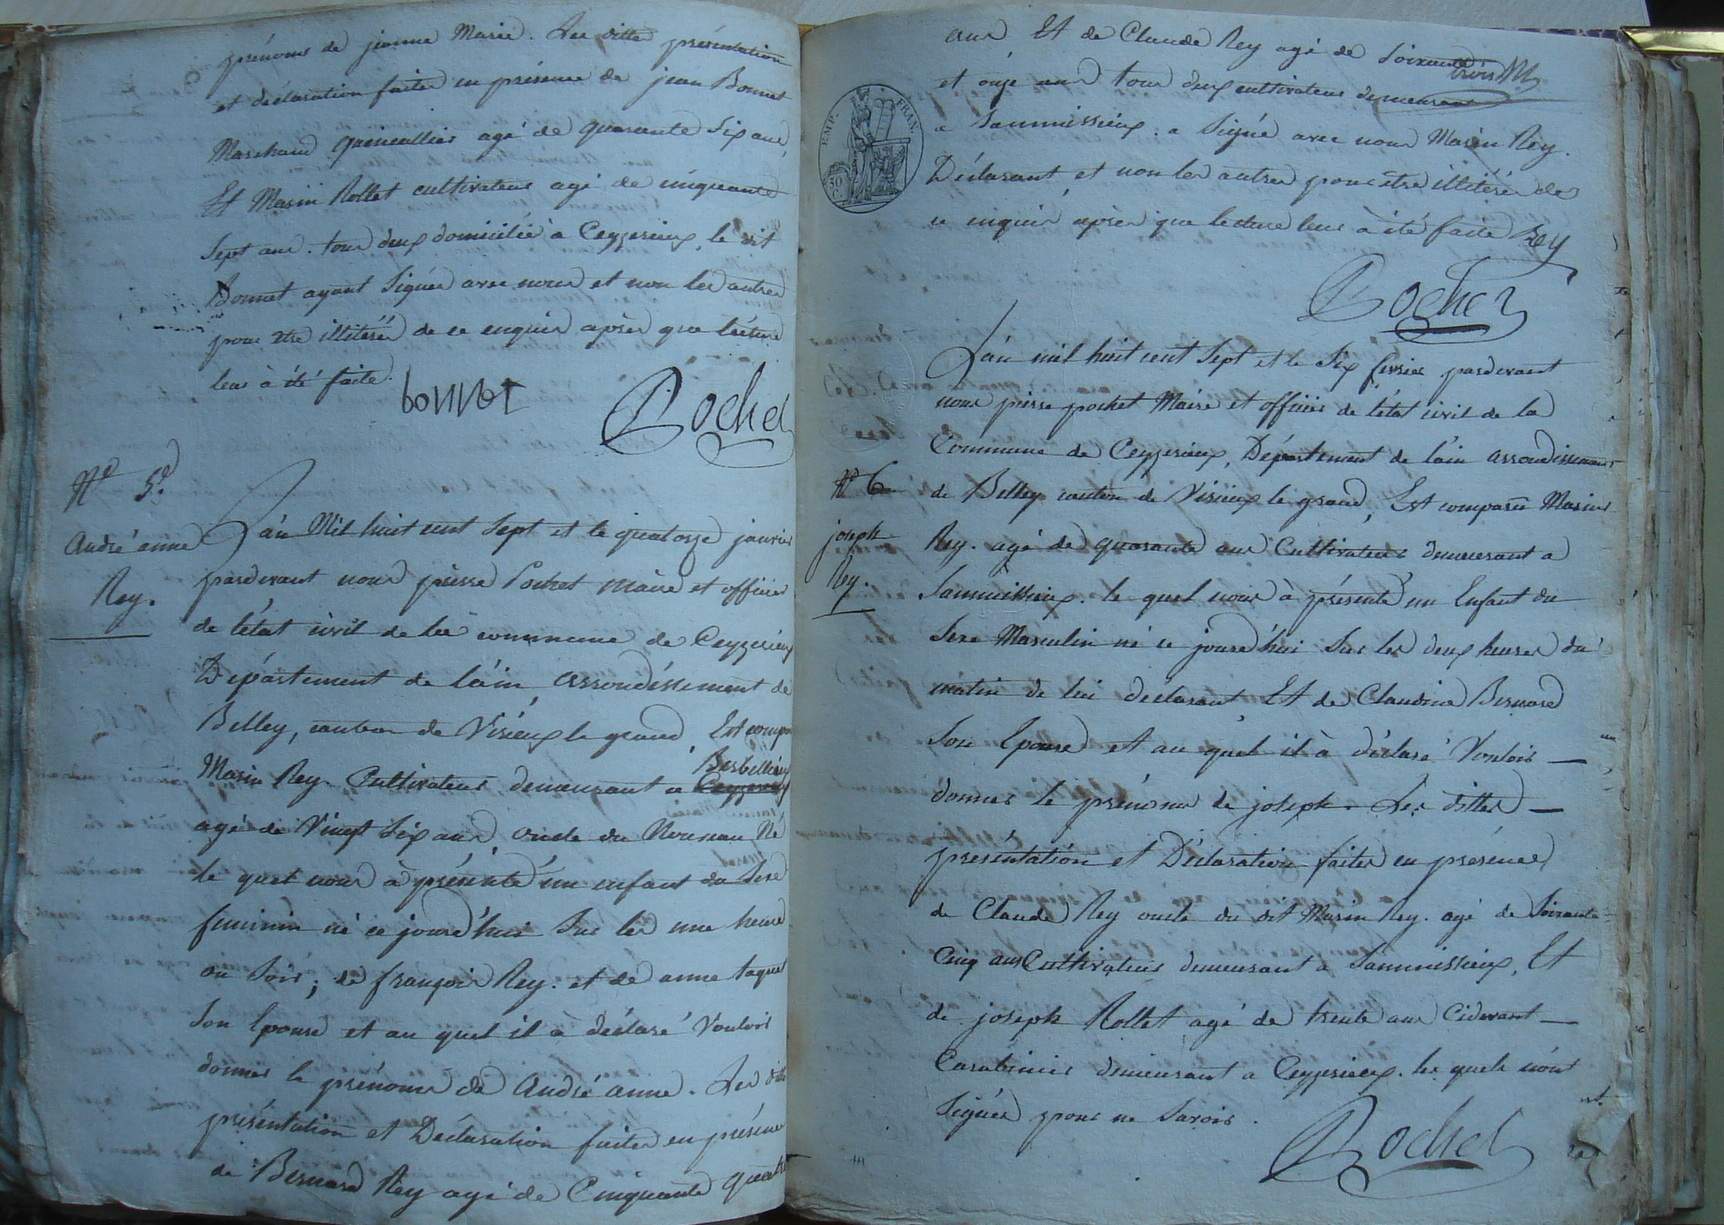 prénoms de jeanne Marie. Les ditte présentation
et déclaration faite en présence de jean Bonnet
Marchand quincallier agé de quarente Six ans,
Et Marin Rollet cultivateur agé de cinquante
Sept ans. tous deux domicilié à Ceyzerieux, le dit
Bonnet ayant Signés avec nous et non les autres
pour etre illitéré de ce enquis après que lécture
leur à été faite.
bonnet
Pochet
N.° 5.e
André anne
Rey.
L'an Mil huit cent Sept et le quatorze janvier
pardevant nous pierre Pochet maire et officier
de l'état civil de la commune de Ceyzerieux
Département de l'ain, arrondissement de
Belley, canton de Virieux le grand, Est comparu
Marin Rey Cultivateur demeurant a Ceyzerieux
agé de Vingt Six ans, oncle du Nouveau Né
le quel nous à présenté un enfant du Sexe
feminin né ce jourd'hui Sur les une heure
du Soir, de françois Rey. et de anne taquet
Son Epouse et au quel il à déclaré Vouloir
donner le prénoms de André anne. Les ditte
présentation et Déclaration faites en présence
de Bernard Rey agé de Cinquante quatre
ans Et de Claude Rey agé de Soixante
EMP. FRAN.
50
et onze ans tous deux cultivateur demeurant
a Sammissieux. a Signé avec nous Marin Rey.
Déclarant, et non les autres pour etre illitéré de
ce enquis après que lecture leur à été faite Rey
Pochet
L'an mil huit cent Sept et le Six fevrier pardevant
nous pierre pochet Maire et officier de l'état civil de la
Commune de Ceyzerieux, Département de l'ain arrondissement
N.° 6
de Belley canton de Virieux le grand, Est comparu Marin
joseph
Rey. agé de quarante ans Cultivateur demeurant a
Rey.
Sammissieux. le quel nous à présenté un Enfant du
Sexe Masculin né ce jourd'hui Sur les deux heures du
matin de lui déclarant Et de Claudine Bernard
Son Epouse et au quel il à déclaré Vouloir
donner le prénoms de joseph. Les dittes
présentation et Déclaration faites en présence
de Claude Rey oncle du dit Marin Rey. agé de Soixante
Cinq ans Cultivateur demeurant a Sammissieux, Et
de joseph Rollet agé de trente ans Cidevant
Carabinier demeurant a Ceyzerieux. les quels n'ont
Signés pour ne Savoir.
Pochet